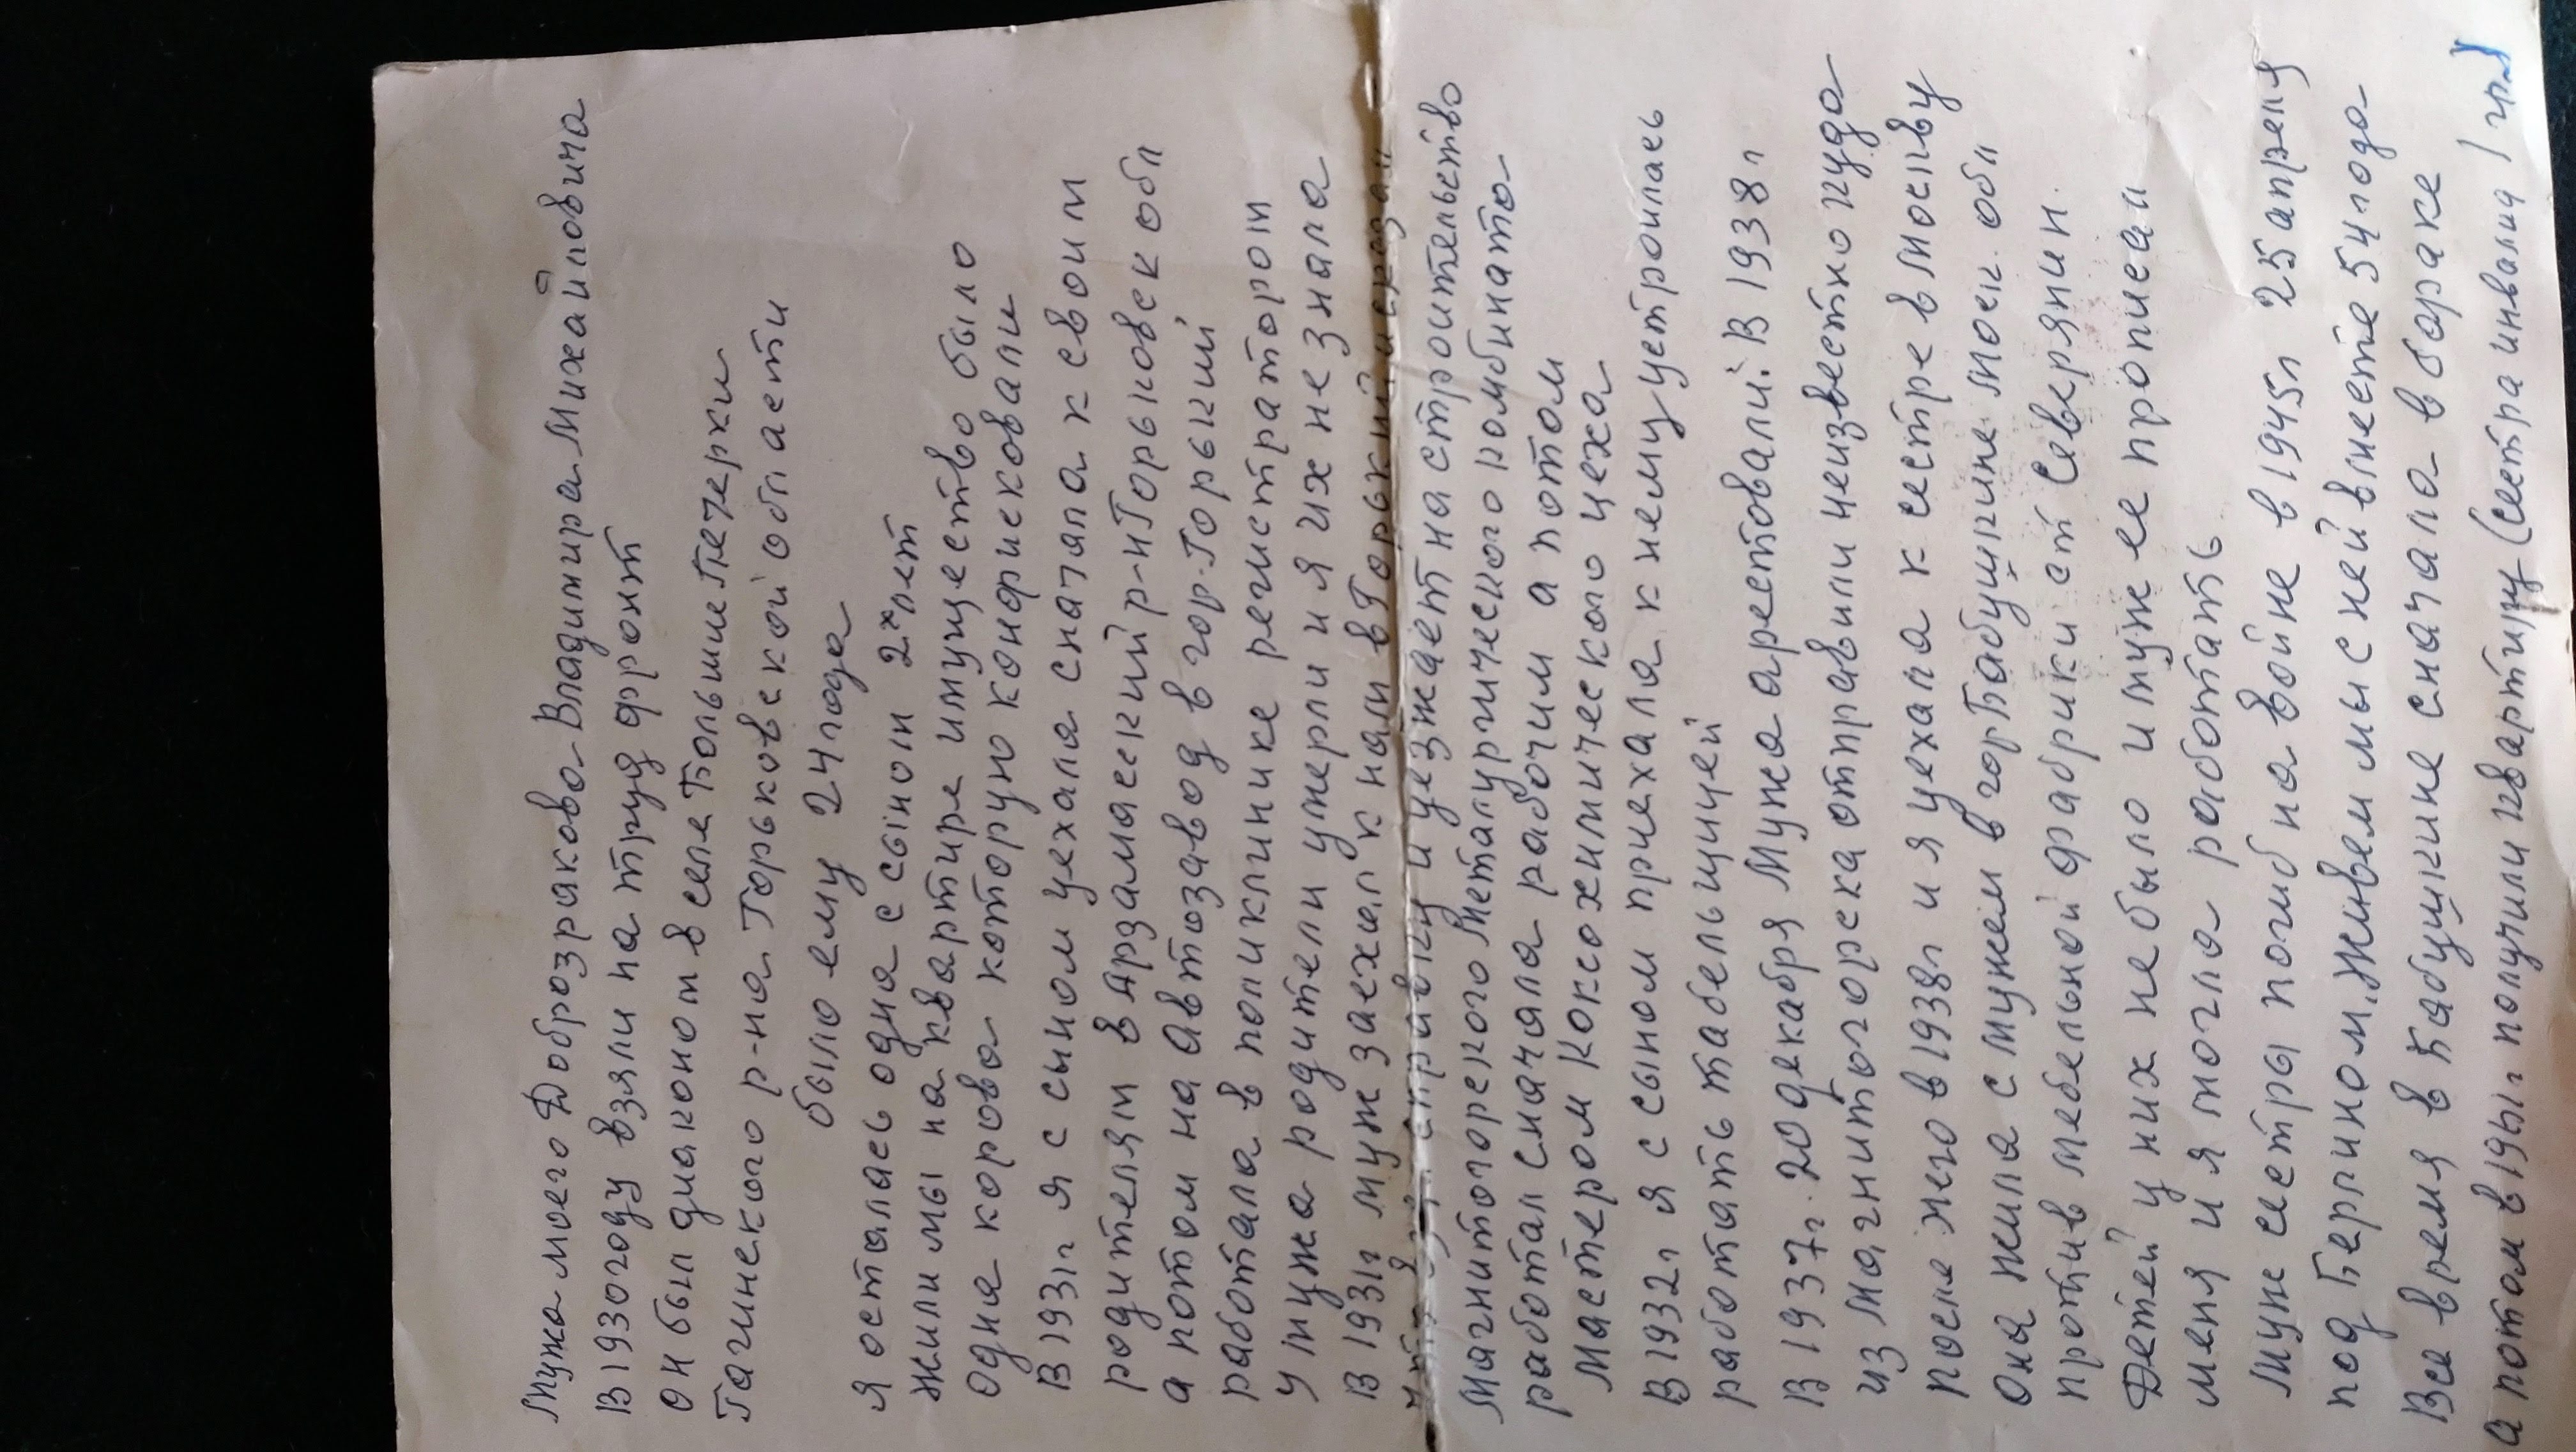 Мужа моего Доброзракова Владимира Михайловича
В 1930 году взяли на труд фронт
Он был диаконом в селе Большие Печерки
Гагинского р-на Горьковской области
было ему 24 года
Я осталась одна с сыном 2х лет
жили мы на квартире имущество было
Одна корова которую конфисковали
В 1931г я с сыном уехала сначала к своим
родителям в Арзамасский р-н Горьковск обл
а потом на Автозавод в гор. Горький
работала в поликлинике регистратором
у мужа родители умерли и я их не знала
В 1931г муж заехал к нам в Горький
справку и уезжает на строительство
Магнитогорского Металургического комбината
работал сначала рабочим а потом
Мастером Коксохимического цеха
В 1932г я с сыном приехала к нему устроилась
работать табельщицей
В 1937г. 20 декабря Мужа арестовали. В 1938г
из Магнитогорска отправили неизвестно куда
После него в 1938г и я уехала к сестре в Москву
Она жила с мужем в гор Бабушкине Моск. обл
против мебельной фабрики ст Северянин.
Детей у них не было и муж ее прописал
меня и я могла работать
Муж сестры погиб на войне в 1945г 25 апреля
под Берлином. Живем мы с ней вместе 54 года
Все время в Бабушкине сначала в бараке
а потом в 1961г. получили квартиру (сестра инвалид 1 гр.)